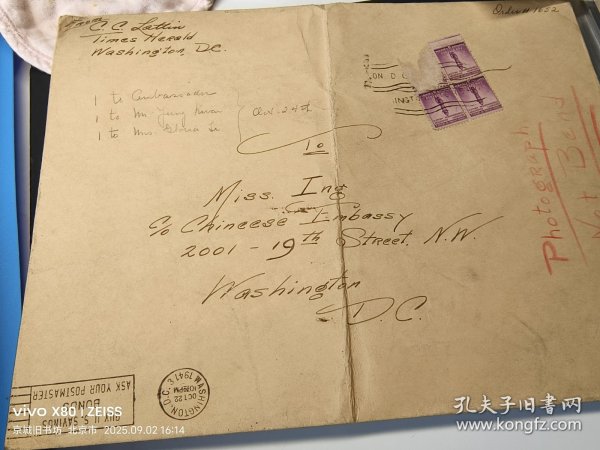 From C. C. Lattin
Times Herald
Washington, D.C.
Order # 1652
1 to Ambassador
1 to Mr.
1 to Mrs.
ON D C
INGT
To
Miss. Ing
c/o Chineese Embassy
2001 - 19th Street, N.W.
Washington
D.C.
Photograph
Not Bend
WASHINGTON, D.C.
OCT 22
1941
U.S. SAVINGS
BONDS
ASK YOUR POSTMASTER
vivo X80 | ZEISS
京城旧书坊 北京市 2025.09.02 16:14
孔夫子旧书网
www.kongfz.com